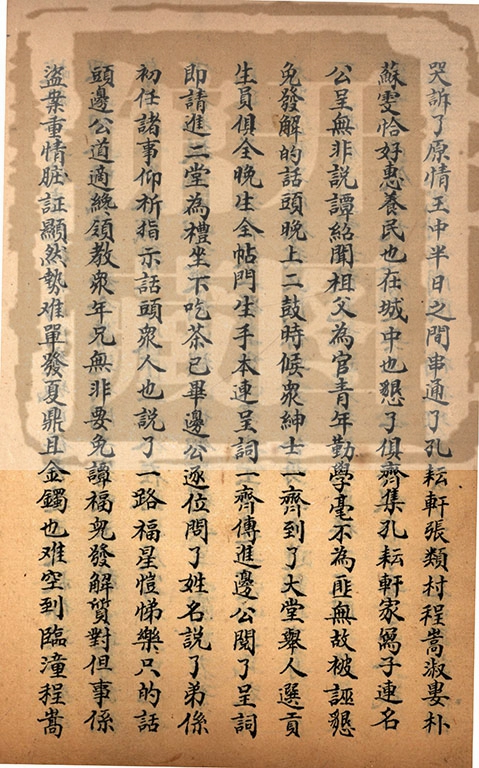 哭訴了原情王中半日之間串通了孔耘軒張類村程嵩淑婁朴
蘇霖恰好惠養民也在城中也懇了俱齊集孔耘軒家寫了連名
公呈無非說譚紹聞祖父為官青年勤學毫不為匪無故被誣懇
免發解的話頭晚上二鼓時候衆紳士一齊到了大堂舉人選貢
生員俱全晚生全帖門生手本連呈詞一齊傳進邊公閱了呈詞
即請進二堂為禮坐下吃茶已畢邊公逐位問了姓名說了弟係
初任諸事仰祈指示話頭衆人也說了一路福星愷悌樂只的話
頭邊公道適纔領教衆年兄無非要免譚福兒發解質對但事係
盜案重情賍証顯然勢难單發夏鼎且金鐲也难空到臨潼程嵩